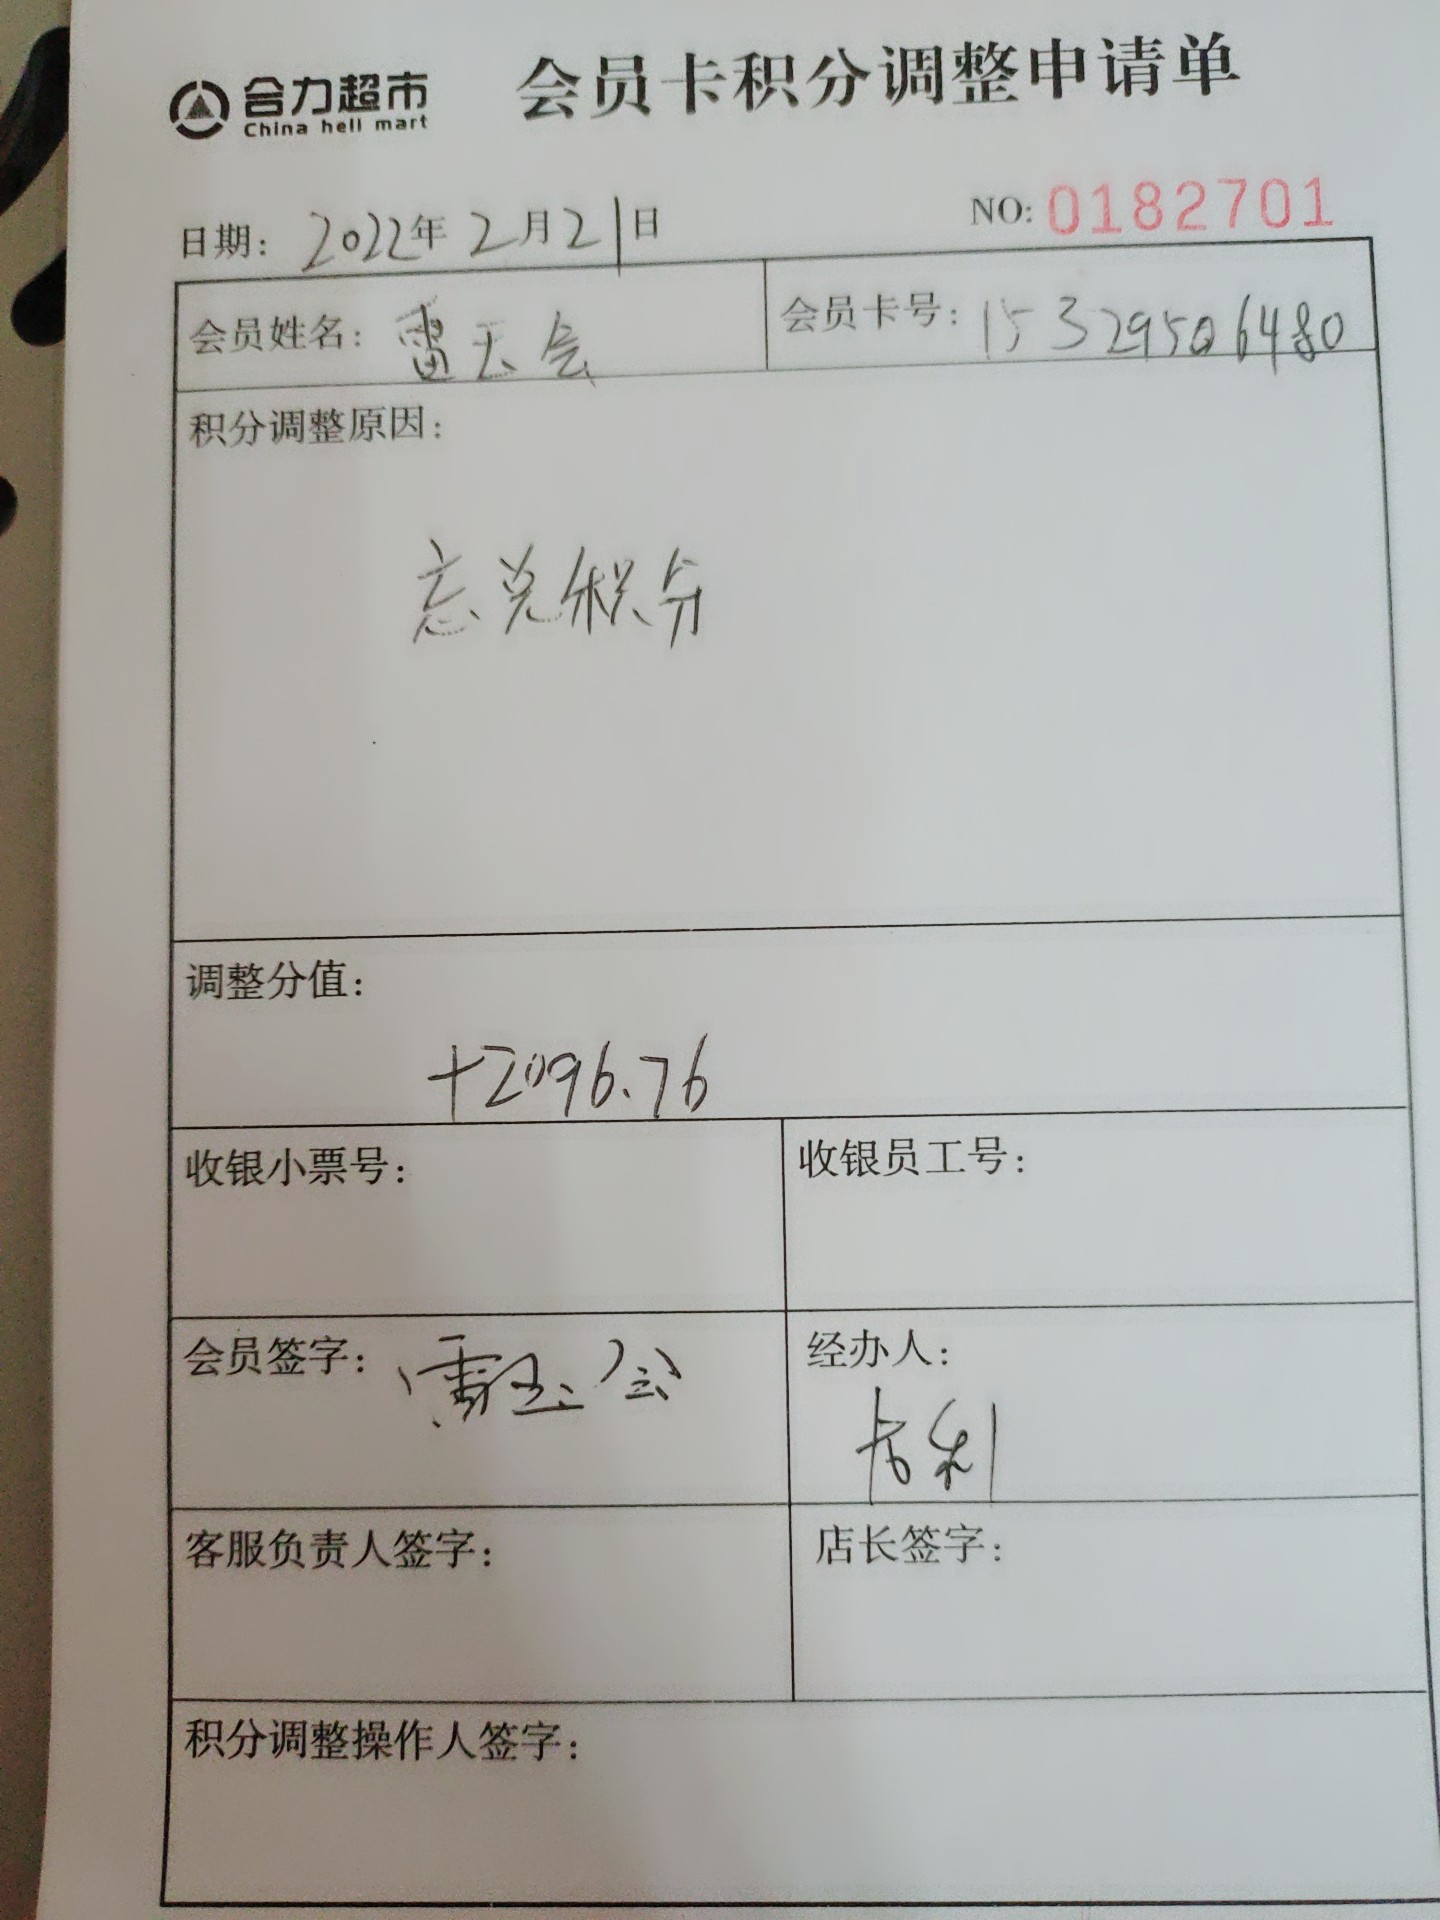 合力超市
China heli mart
会员卡积分调整申请单
日期：2022年2月21日
NO: 0182701
会员姓名：雷玉会
会员卡号：15329506480
积分调整原因：
忘兑积分
调整分值：
+2096.76
收银小票号：
收银员工号：
会员签字：雷玉会
经办人：
客服负责人签字：
店长签字：
积分调整操作人签字：